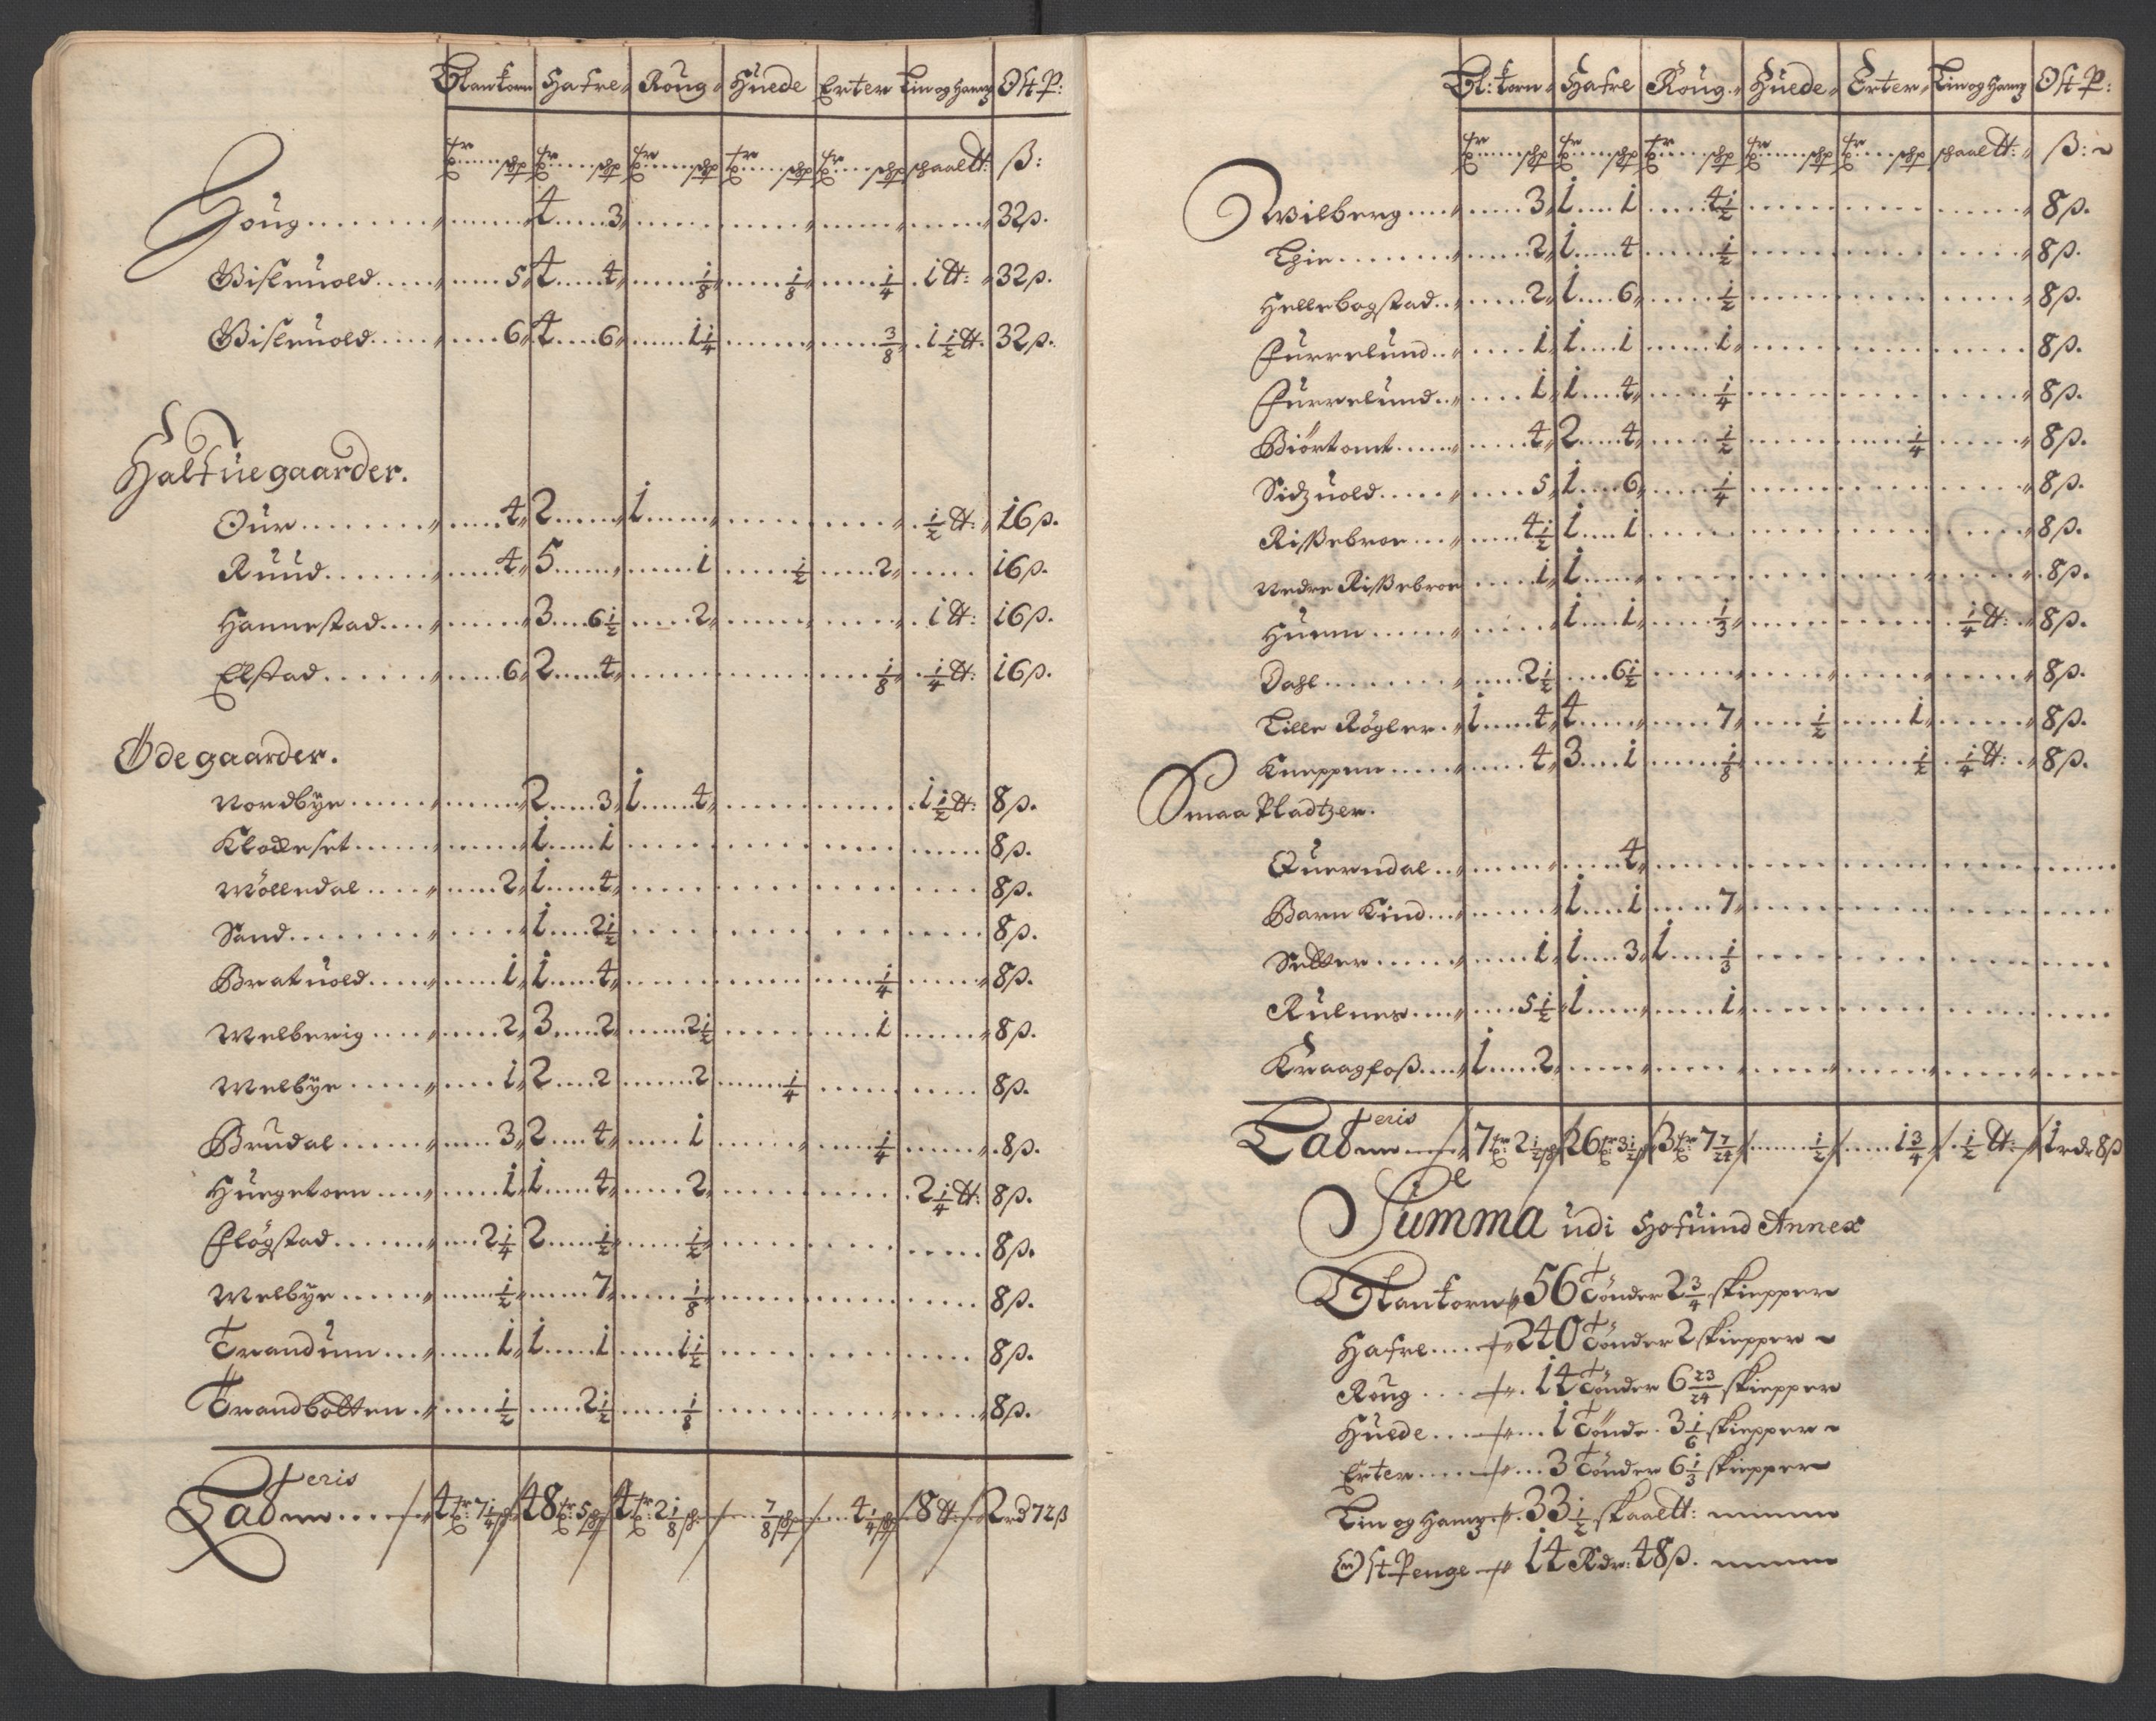 Blankorn Hafre Roug Huede Erter Lin og Hamp Ost P:
tr schp tr schp tr schp tr schp tr schp skaal℔: ß:
Houg 4 3 32ß.
Bisleuold 5 4 4 1/8 1/8 1/4 1℔: 32ß.
Bisleuold 6 4 6 1 1/4 3/8 1 1/2℔. 32ß.
Halfuegaarder.
Our 4 2 1 1/2℔: 16ß.
Ruud 4 5 1 1/2 2 16ß.
Hannestad 3 6 1/2 2 1℔: 16ß.
Elstad 6 2 4 1/8 1/4℔: 16ß.
Ödegaarder.
Nordbÿe 2 3 1 4 1 1/2℔: 8ß.
Klokkeset 1 1 8ß.
Mölledal 2 1 4 8ß.
Sand 1 2 1/2 8ß.
Bratuold 1 1 4 1/4 8ß.
Melberig 2 3 2 2 1/2 1 8ß.
Melbÿe 1 2 2 2 1/4 8ß.
Brudal 3 2 4 1 1/4 8ß.
Huegetoen 1 1 4 2 2 1/4℔: 8ß.
Flögstad 2 1/4 2 1/2 1/2 8ß.
Melbÿe 1/2 7 1/8 8ß.
Trandum 1 1 1 1 1/2 8ß.
Trandbotten 1/2 2 1/2 1/8 8ß.
Lateris 4 tr: 7 1/4 schp 48 tr: 5 schp 4 tr: 2 1/8 sch 7/8 schp 4 1/4 schp 8℔: 2 rd 72ß
Bl: korn Hafre Roug Huede Erter Lin og Hamp Ost P:
tr schp tr schp tr schp tr schp tr schp skaal℔: ß:
Wilberg 3 1 1 4 1/2 8ß.
Thie 2 1 4 1/2 8ß.
Hellebogstad 2 1 6 1/2 8ß.
Furrelund 1 1 1 1 8ß.
Furrelund 1 1 4 1/4 8ß.
Biörtomt 4 2 4 1/2 1/4 8ß.
Sidzuold 5 1 6 1/4 8ß.
Rißebroe 4 1/2 1 1 8ß.
Nedre Rißebroe 1 1 8ß.
Huem 1 1 1/3 1/4℔: 8ß.
Dahl 2 1/2 6 1/2 8ß.
Lille Rögler 1 4 4 7 1/2 1 8ß.
Kneppen 4 3 1 1/8 1/2 1/4℔: 8ß.
Smaa Pladtzer.
Querndal 4
Barn Kind 1 1 7
Setter 1 1 3 1 1/3
Rulnes 5 1/2 1 1
Kraagfoß 1 2
Lateris 7 tr: 2 1/2 sch 26 tr: 3 1/2 3 tr: 7 7/24 1/2 1 3/4 1/2℔: 1 rdr 8ß
Summa udi Hofuind Annex
Blankorn 56 Tönder 2 3/4 skiepper
Hafre 240 Tönder 2 skiepper
Roug 14 Tönder 6 23/24 skiepper
Huede 1 Tönde 3 1/6 skiepper
Erter 3 Tönder 6 1/3 skiepper
Lin og Hamp 33 1/2 skaal℔:
Ost Penge 14 Rdr: 48ß.